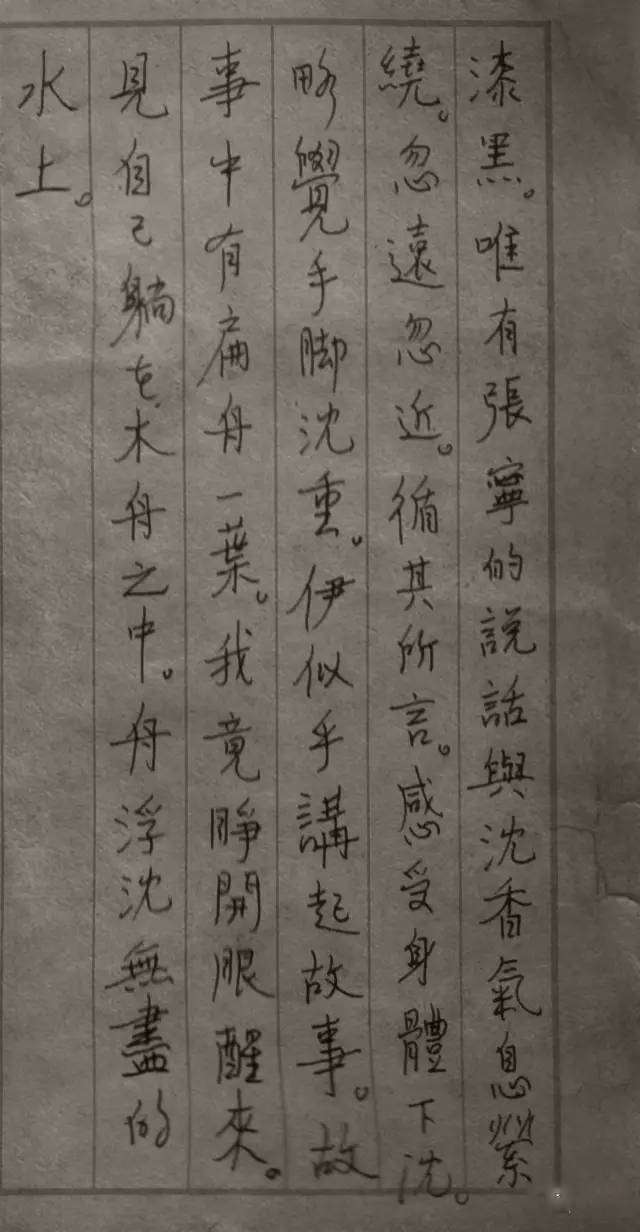 漆黑。唯有張寧的説話與沈香氣息縈
繞。忽遠忽近。循其所言。感受身體下沈。
略覺手脚沈重。伊似乎講起故事。故
事中有扁舟一葉。我竟睜開眼醒來。
見自己躺在木舟之中。舟浮沈無盡的
水上。